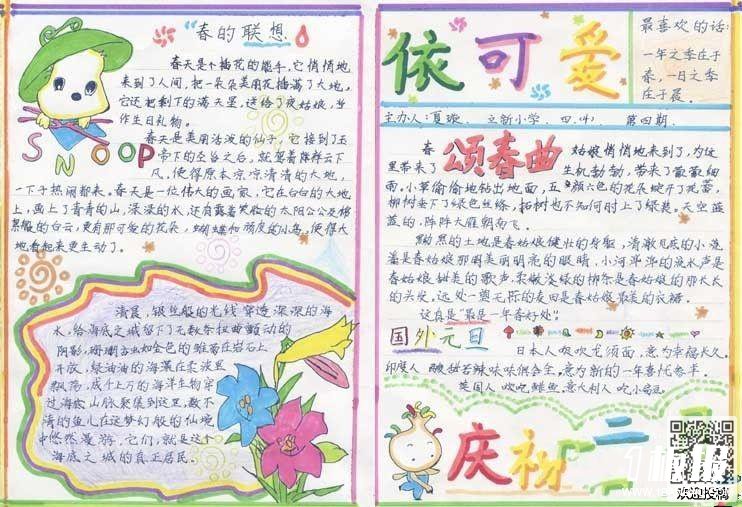 “春的联想”
春天是个插花的能手,它悄悄地
来到了人间,把一朵朵美丽花插满了大地。
它还把剩下的满天星,送给了夜姑娘,当
作生日礼物。
春天是美丽活泼的仙子,它接到玉
帝下的圣旨之后,就驾着祥云下
凡,使得原本凉凉清清的大地,
一下子热闹起来。春天是一位伟大的画家,它在白白的大地
上,画上了青青的山,深深的水,还有露着笑脸的太阳公公及修
的白云,更有那可爱的花朵,蝴蝶和顽皮的小鸟,使得大
地看起来更生动了。
SNOOP
清晨,银丝般的光线穿透深深的海
水,给海底之城留下了无数条扭曲颤动的
阴影,珊瑚虫如金色的雏菊在岩石上
开放,绿油油的海藻在柔波里
飘荡,成千上万的海洋生物穿
过海底山脉聚集到这里,数不
清的鱼儿在这梦幻般的仙境
中悠然漫游,它们,就是这个
海底之城的真正居民。
依可爱
最喜欢的话:
一年之季在于
春,一日之季
在于晨。
主办人:夏 立新小学 四.(4) 第四期
颂春曲
春姑娘悄悄地来到了,为这
里带来了生机勃勃,带来了微微细
雨。小草偷偷地钻出地面,五颜六色的花朵绽开了花蕾,
柳树垂下了绿色丝绦,柘树也不知何时上了绿装。天空蓝
蓝的,阵阵大雁朝南飞。
黝黑的土地是春姑娘健壮的身躯,清澈见底的小流
溪是春姑娘那明美丽明亮的眼睛,小河泙泙的流水声是
春姑娘甜美的歌声,柔嫩淡绿的柳条是春姑娘的那长长
的头发,远处一望无际的麦田是春姑娘最美的衣裙。
这真是“最是一年春好处”。
国外元旦
日本人 吸吹龙须面,意为幸福长久。
印度人 酸甜苦辣味味俱会全,意为新的一年喜忧参半。
英国人 吹吃鲑鱼,意大利人 吃小扁豆。
庆祝
欢迎投稿